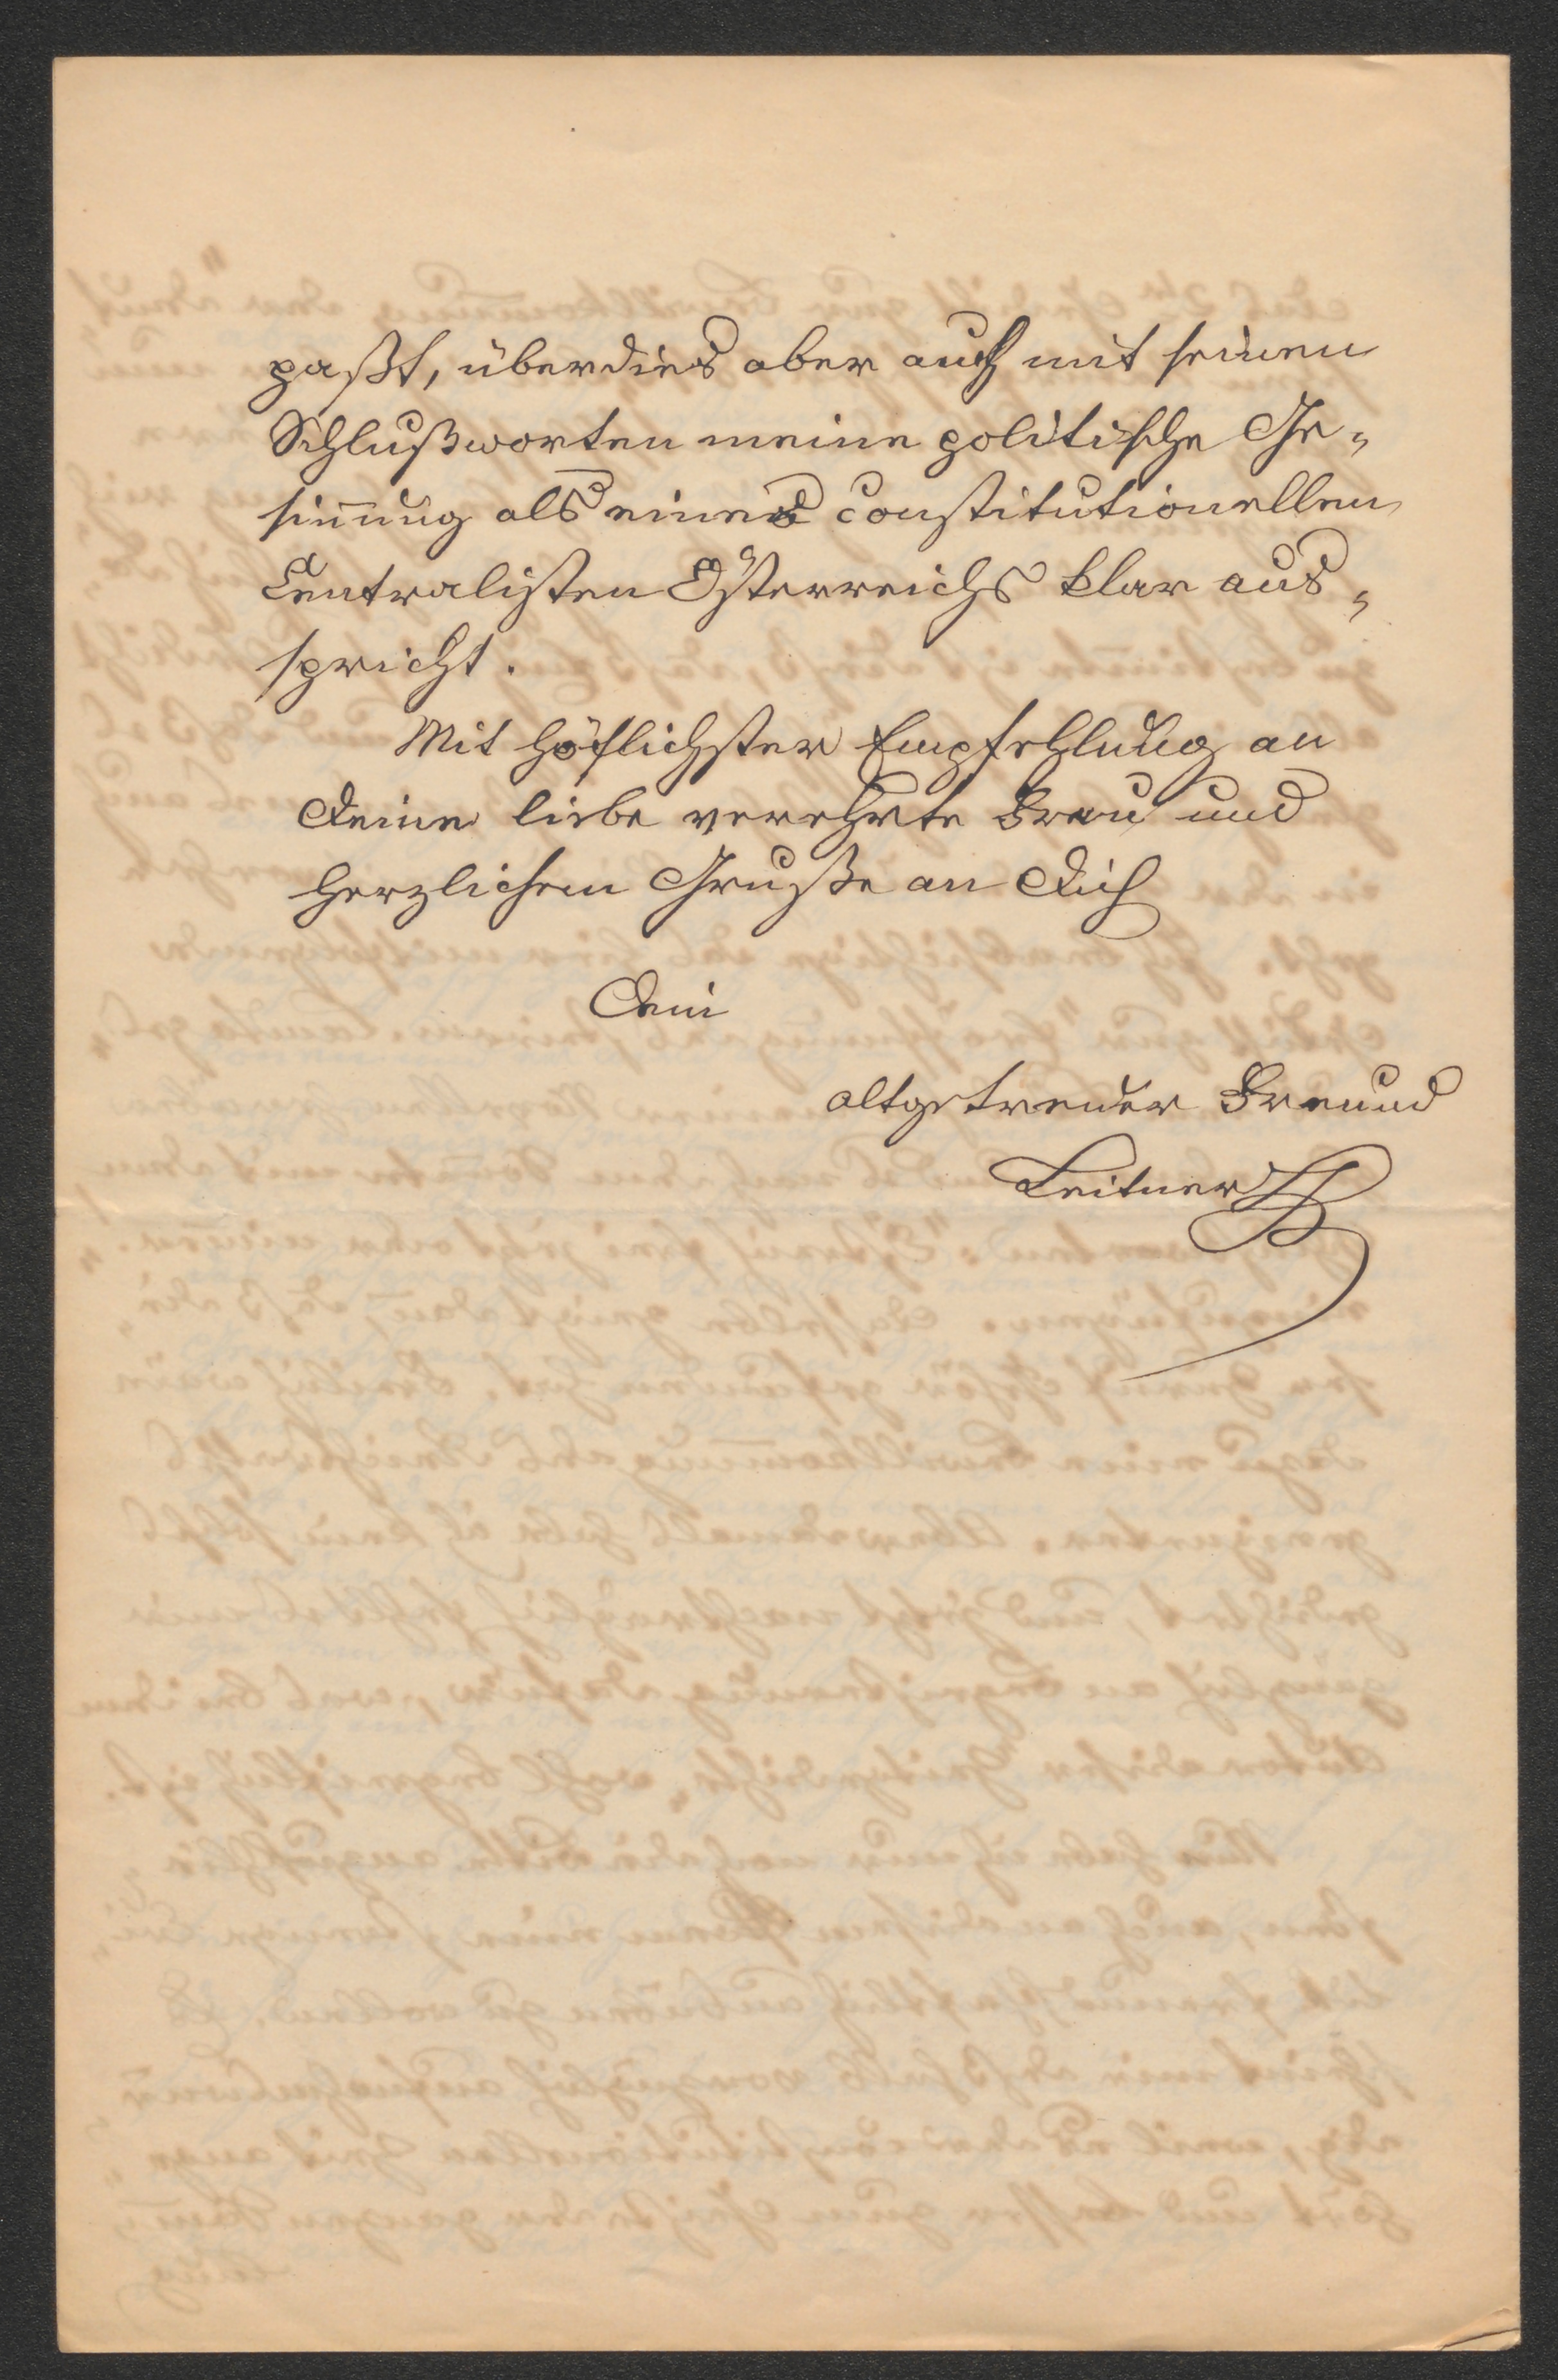 paßt, überdies aber auch mit seinen
Schlußworten meine politische Ge-
sinnung als eines constitutionellen
Centralisten Österreichs klar aus-
spricht.
Mit höflichster Empfehlung an
Deine liebe verehrte Frau und
herzlichem Gruße an Dich
Dein
altgetreuer Freund
Leitner